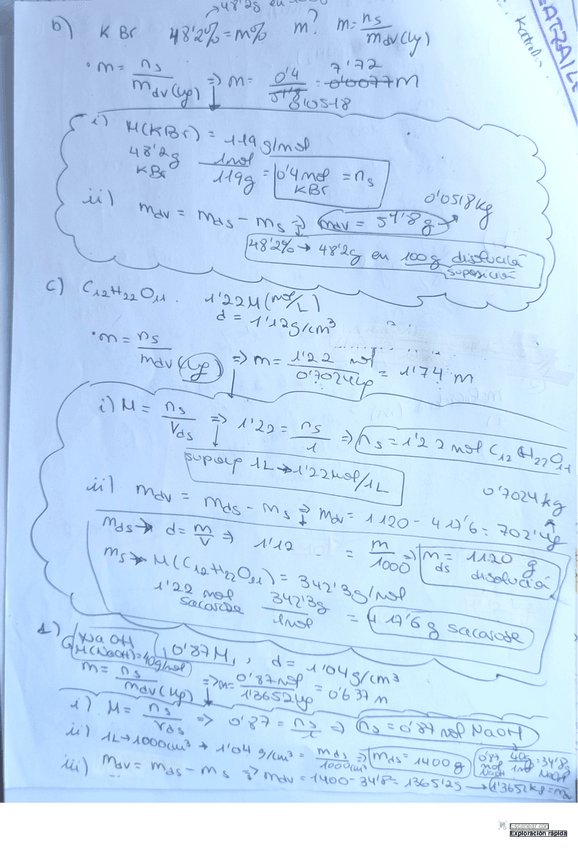 →48'2g en 100g
ATZAILE
Katrin
b) KBr 48'2% = m% m? m = ns/mdv(kg)
· m = ns/mdv(kg) ⇒ m = 0'4/0'0518 = 7'72 m
i) M(KBr) = 119 g/mol
48'2g KBr 1mol/119g = 0'4 mol KBr = ns
0'0518 kg
ii) mdv = mds - ms ⇒ mdv = 51'8g
48'2% → 48'2g en 100g disolución
suposición
c) C12H22O11. 1'22M (mol/L)
d = 1'12g/cm³
· m = ns/mdv(kg) ⇒ m = 1'22 mol/0'7024kg = 1'74 m
i) M = ns/Vds ⇒ 1'22 = ns/1 ⇒ ns = 1'22 mol C12H22O11
supong 1L → 1'22mol/1L
0'7024 kg
ii) mdv = mds - ms ⇒ mdv = 1120 - 417'6 = 702'4g
mds → d = m/V ⇒ 1'12 = m/1000 ⇒ mds = 1120 g disolución
ms → M(C12H22O11) = 342'3g/mol
1'22 mol sacarosa 342'3g/1mol = 417'6g sacarosa
d) NaOH 0'87M, d = 1'04g/cm³
M(NaOH)=40g/mol
m = ns/mdv(kg) ⇒ m = 0'87mol/1'3652kg = 0'637 m
i) M = ns/Vds ⇒ 0'87 = ns/1 ⇒ ns = 0'87 mol NaOH
ii) 1L → 1000cm³ → 1'04 g/cm³ = mds/1000cm³ ⇒ mds = 1400 g 0'87 mol NaOH 40g/1mol = 34'8g NaOH
iii) mdv = mds - ms ⇒ mdv = 1400 - 34'8 = 1365'2g → 1'3652kg = mdv
Escaneado con
Exploración rápida